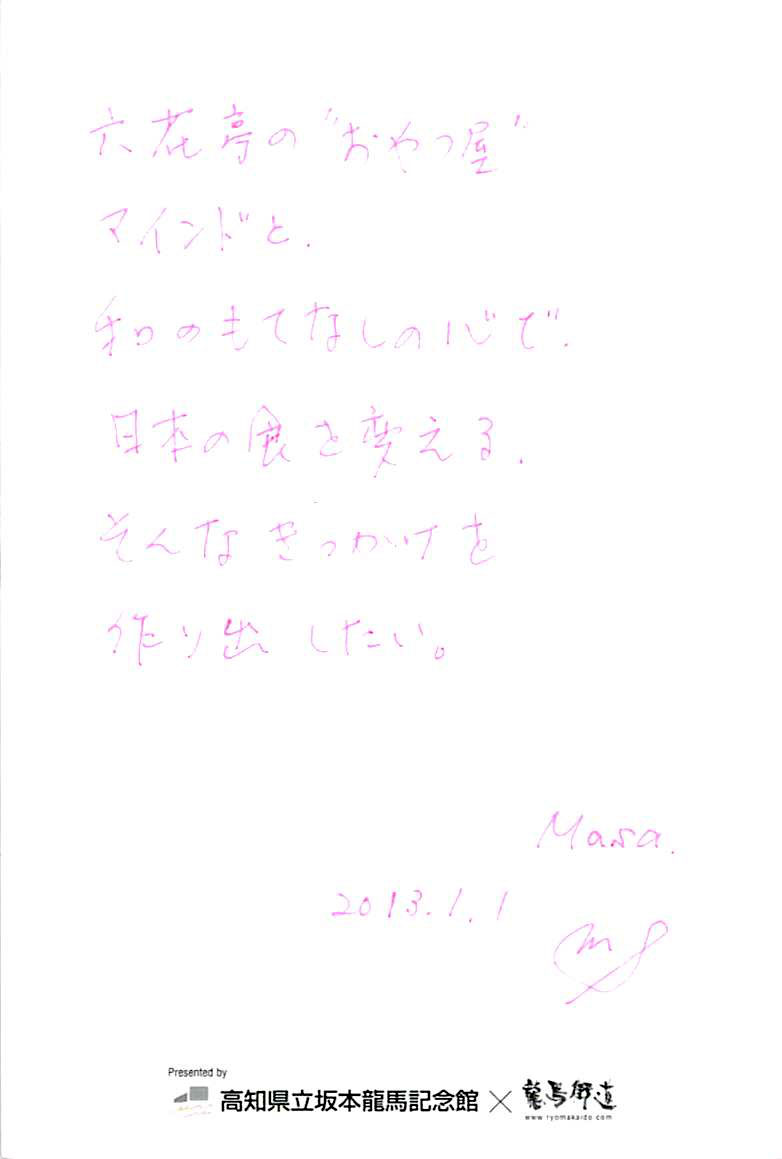 六花亭の"おやつ屋"
マインドと、
和のもてなしの心で、
日本の展を変える、
そんなきっかけを
作り出したい。
Masa.
2013.1.1
Presented by
高知県立坂本龍馬記念館×龍馬街道
www.ryomakaido.com